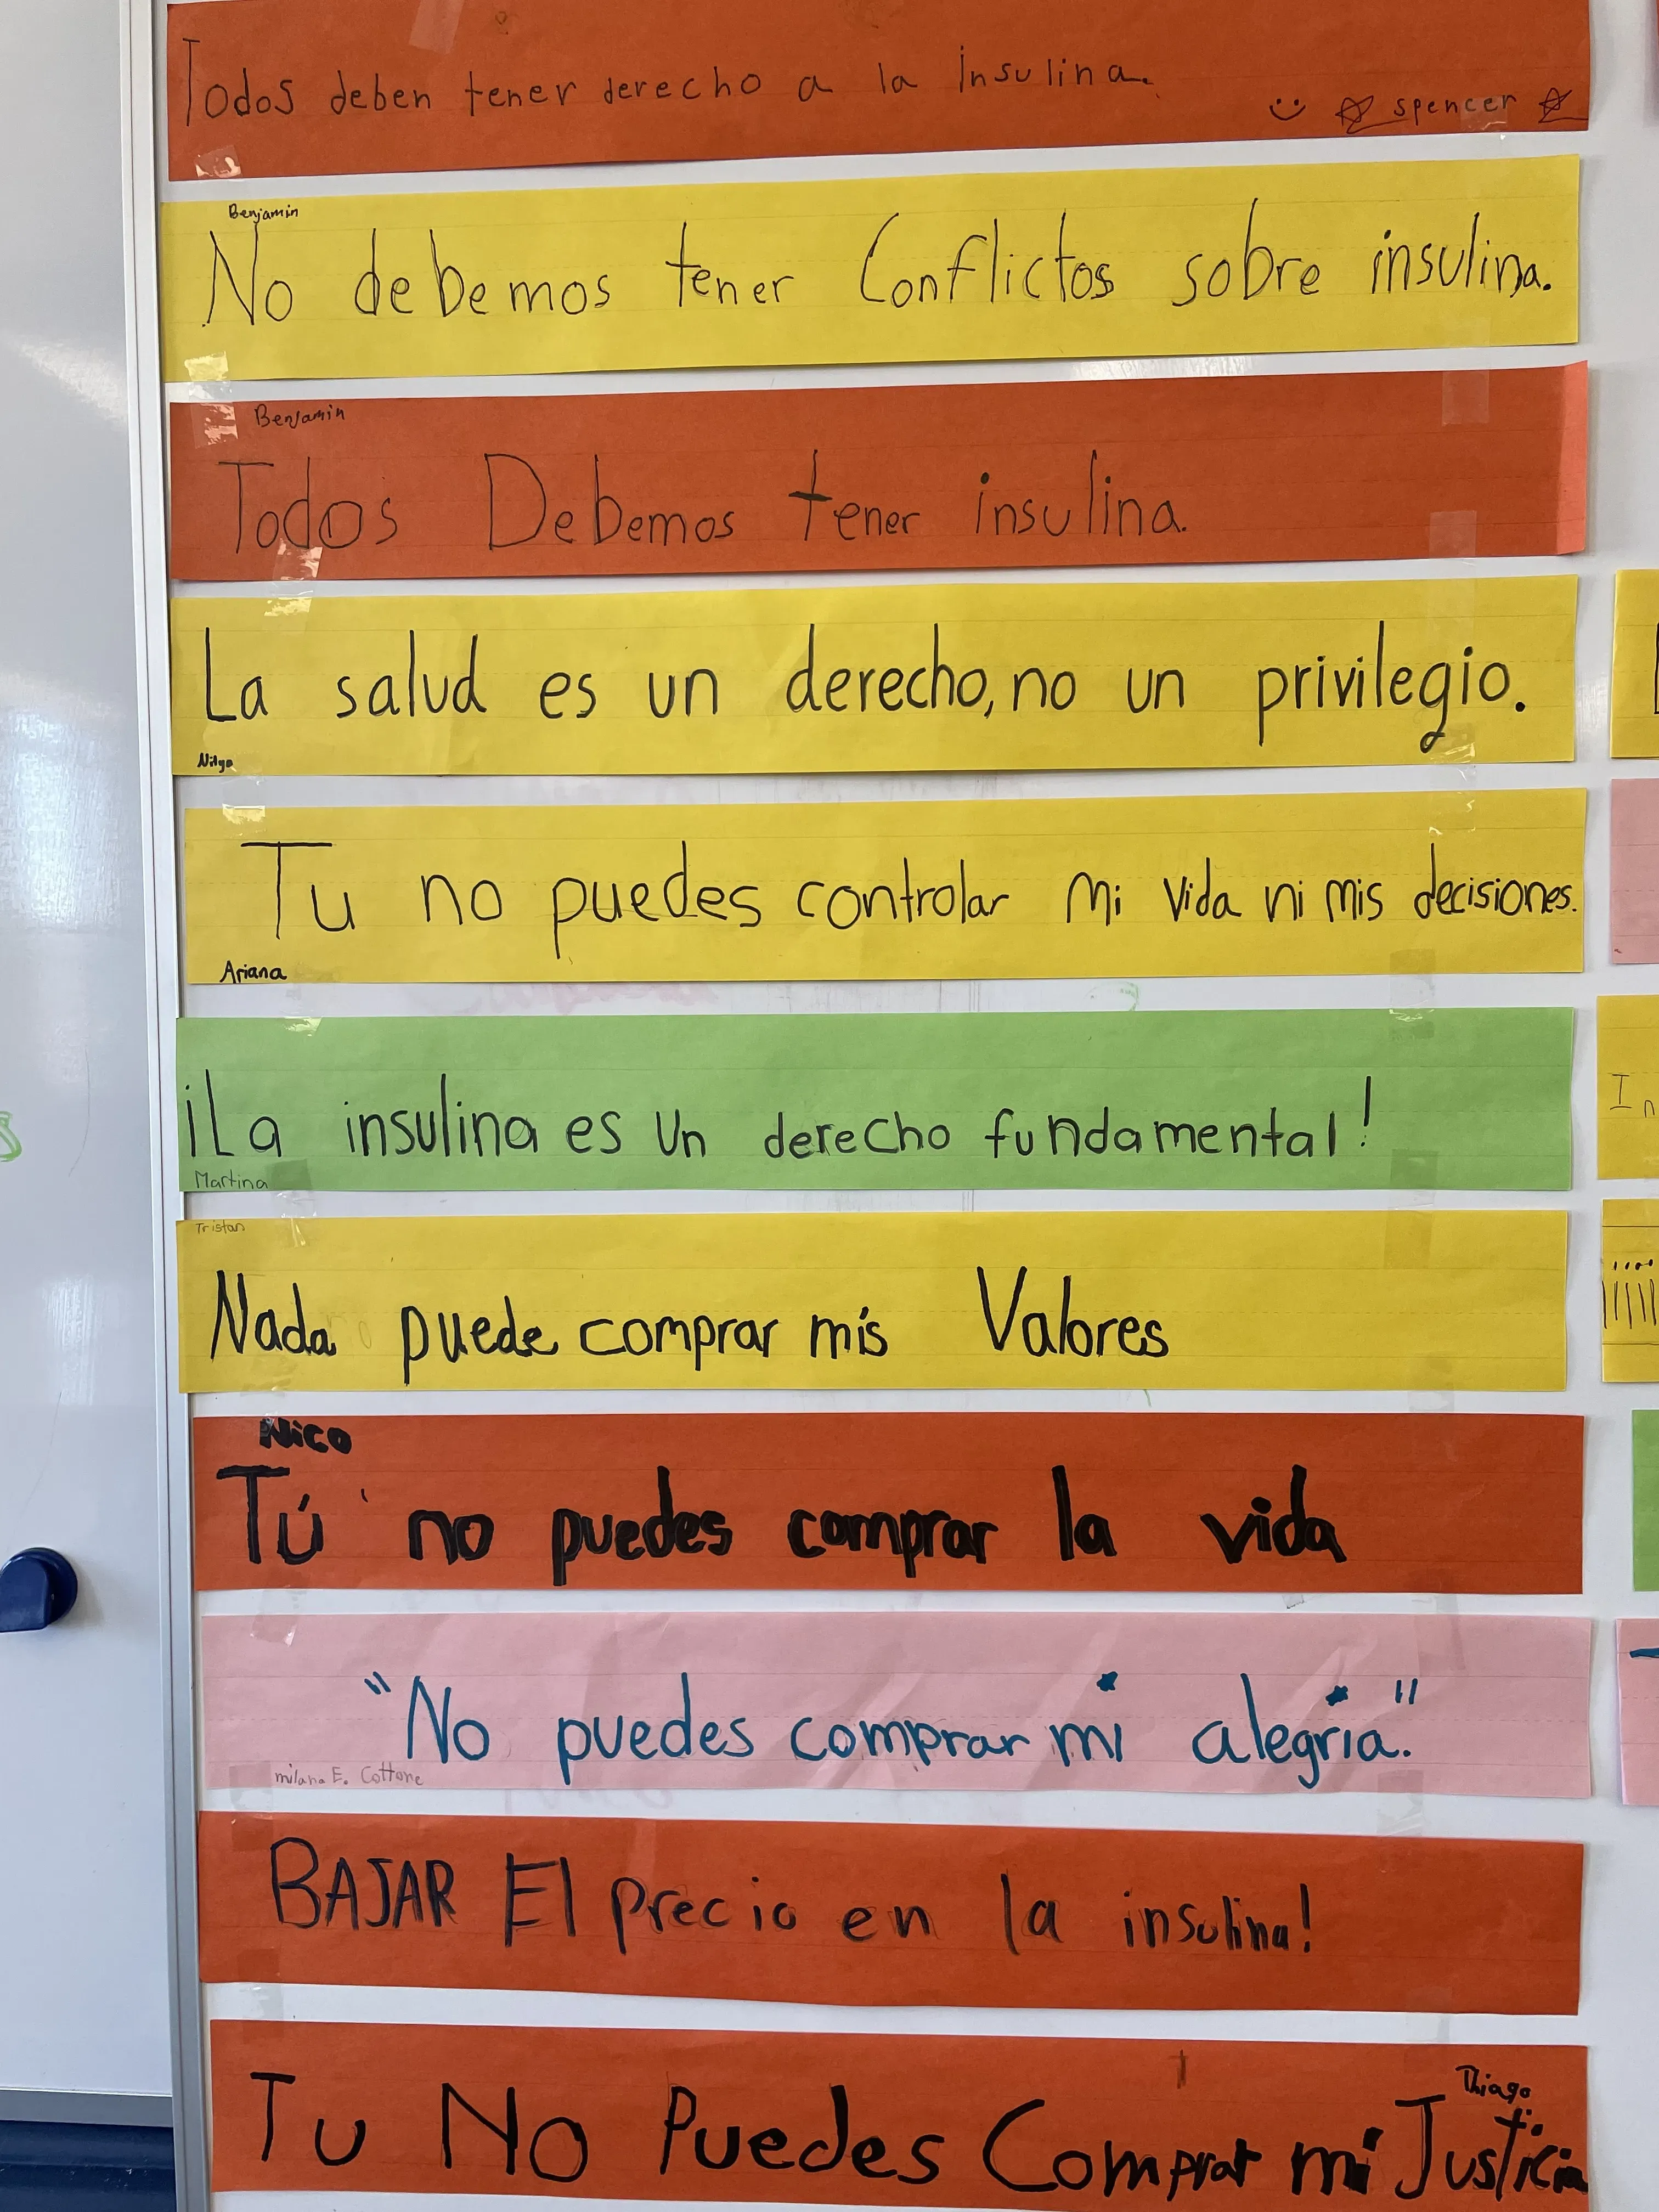 Todos deben tener derecho a la insulina.
spencer
Benjamin
No debemos tener Conflictos sobre insulina.
Benjamin
Todos Debemos tener insulina.
La salud es un derecho, no un privilegio.
Tu no puedes controlar mi vida ni mis decisiones.
Ariana
¡La insulina es un derecho fundamental!
Martina
Tristan
Nada puede comprar mis Valores
Nico
Tú no puedes comprar la vida
"No puedes comprar mi alegria."
milana E. Cottone
BAJAR El precio en la insulina!
Thiago
Tu No Puedes Comprar mi Justicia
In